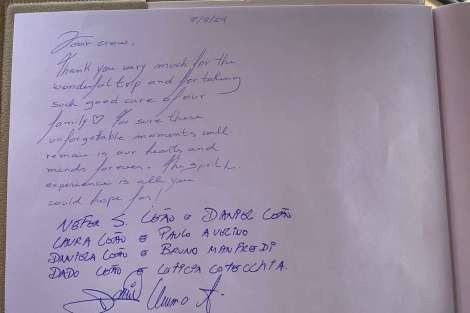 8/8/24
Dear crew,
Thank you very much for the
wonderful trip and for taking
such good care of our
family ♡ For sure these
unforgetable moments will
remain in our hearts and
minds forever. The
experience is all you
could hope for!
NEFER S. LEÃO E DANIEL LEÃO
LAURA LEÃO E PAULO AVELINO
DANIELA LEÃO E BRUNO MANFREDI
DADO LEÃO E LETICIA COTECCHIA.